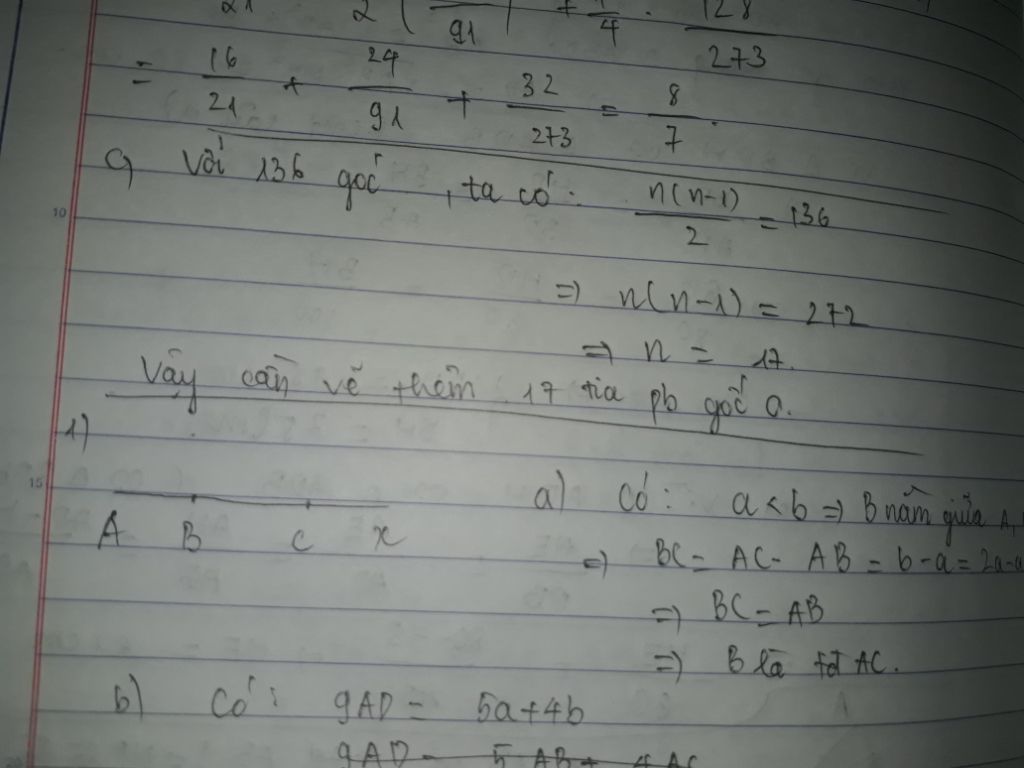 21 2 ( /91 ) + 1/4 . 128/273
= 16/21 + 24/91 + 32/273 = 8/7.
c) Với 136 góc, ta có: n(n-1)/2 = 136
10
=> n(n-1) = 272
=> n = 17.
Vậy cần vẽ thêm 17 tia pb gốc O.
1)
15
A B C x
a) Có: a < b => B nằm giữa A,
=> BC = AC - AB = b - a = 2a - a
=> BC = AB
=> B là tđ AC.
b) Có: 9AD = 5a + 4b
9AD = 5AB + 4AC
20